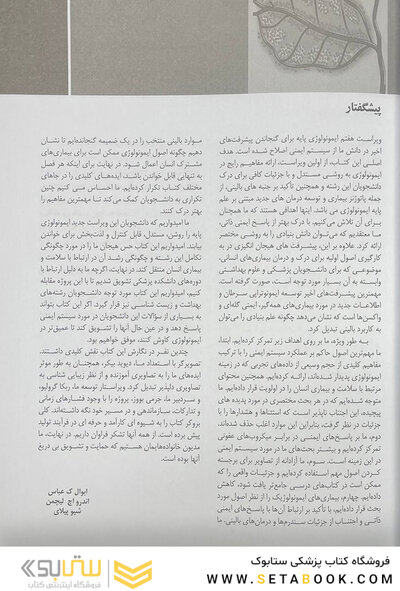 پیشگفتار
ویراست هفتم ایمونولوژی پایه برای گنجاندن پیشرفت‌های
اخیر در دانش ما از سیستم ایمنی اصلاح شده است. هدف
اصلی این کتاب، از اولین ویراست، ارائه مفاهیم رایج در
ایمونولوژی به روشی مستدل و با جزئیات کافی برای درک
دانشجویان این رشته و همچنین تأکید بر جنبه های بالینی، از
جمله پاتوژنز بیماری و توسعه درمان های جدید مبتنی بر علم
پایه ایمونولوژی می باشد. اینها اهدافی هستند که ما همچنان
برای آن تلاش می‌کنیم. با درک بهتر از پاسخ‌های ایمنی ذاتی،
ما معتقدیم که می‌توان دانش بنیادی را به روشی مختصر
ارائه کرد. علاوه بر این، پیشرفت های هیجان انگیزی در به
کارگیری اصول اولیه برای درک و درمان بیماری‌های انسانی،
موضوعی که برای دانشجویان پزشکی و علوم بهداشتی
وابسته به آن بسیار مورد توجه است، صورت گرفته است.
مهمترین پیشرفت‌های اخیر توسعه ایمونوتراپی سرطان و
اطلاعات جدید در مورد بیماری‌های همه‌گیر، ایمنی گله‌ای و
واکسن‌ها است که نشان می‌دهد چگونه علم بنیادی را می‌توان
به کاربرد بالینی تبدیل کرد.
به طور ویژه، ما بر روی اهداف زیر تمرکز کرده‌ایم. ابتدا،
ما مهم‌ترین اصول حاکم بر عملکرد سیستم ایمنی را با ترکیب
مفاهیم کلیدی از حجم وسیعی از داده‌های تجربی که در زمینه
ایمونولوژی پدیدار شده‌اند، ارائه کرده‌ایم. همچنین محتوای
مرتبط با سلامت و بیماری انسان را در اولویت قرار داده‌ایم. ما
متوجه شده‌ایم که در هر بحث مختصری در مورد پدیده های
پیچیده، این اجتناب ناپذیر است که استثناها و هشدارها را با
جزئیات در نظر گرفت، بنابراین این موارد اغلب حذف شده‌اند.
دوم، ما بر پاسخ‌های ایمنی در برابر میکروب‌های عفونی
تمرکز کرده‌ایم و بیشتر بحث‌های ما در مورد سیستم ایمنی
در این زمینه است. سوم، ما آزادانه از تصاویر برای برجسته
کردن اصول مهم استفاده کرده‌ایم و جزئیات واقعی را که
ممکن است در کتاب‌های درسی جامع‌تر یافت شود، کاهش
داده‌ایم. چهارم، بیماری‌های ایمونولوژیک را از نظر اصول مورد
بحث قرار داده‌ایم، با تأکید بر ارتباط آن‌ها با پاسخ‌های ایمنی
ذاتی و اجتناب از جزئیات سندرم‌ها و درمان‌های بالینی. ما
موارد بالینی منتخب را در یک ضمیمه گنجانده‌ایم تا نشان
دهیم چگونه اصول ایمونولوژی ممکن است برای بیماری‌های
مشترک انسان اعمال شود. در نهایت برای اینکه هر فصل
به تنهایی قابل خواندن باشد، ایده‌های کلیدی را در جاهای
مختلف کتاب تکرار کرده‌ایم. ما احساس می کنیم چنین
تکراری به دانشجویان کمک می‌کند تا مهمترین مفاهیم را
بهتر درک کنند.
ما امیدواریم که دانشجویان این ویراست جدید ایمونولوژی
پایه را روشن، مستدل، قابل کنترل و لذت‌بخش برای خواندن
بیابند. امیدواریم این کتاب حس هیجان ما را در مورد چگونگی
تکامل این رشته و چگونگی رشد آن در ارتباط با سلامت و
بیماری انسان منتقل کند. در نهایت، اگرچه ما به دلیل ارتباط با
دوره‌های دانشکده پزشکی تشویق شدیم تا با این پروژه مقابله
کنیم، امیدواریم این کتاب مورد توجه دانشجویان رشته‌های
بهداشت و زیست شناسی نیز قرار گیرد. اگر این کتاب بتواند
به بسیاری از سؤالات این دانشجویان در مورد سیستم ایمنی
پاسخ دهد و در عین حال آنها را تشویق کند تا عمیق‌تر در
ایمونولوژی کاوش کنند، موفق خواهیم بود.
چندین نفر در نگارش این کتاب نقش کلیدی داشتند.
تصویرگر با استعداد ما، دیوید بیکر، همچنان به طور موثر
ایده‌های ما را به تصاویری آموزنده و از نظر زیبایی شناسی به
تصاویری دلپذیر تبدیل کرد. ویراستار توسعه ما، ربکا گرولیو،
و سردبیر ما، جرمی بووز، پروژه را با وجود فشارهای زمانی
و تدارکات، سازماندهی و در مسیر خود نگه داشته‌اند. کلی
بروکز کتاب را به شیوه ای کارآمد و حرفه ای در فرآیند تولید
پیش برده است. از همه آنها تشکر فراوان داریم. در نهایت، ما
مدیون خانواده‌هایمان هستیم که حمایت و تشویق بی دریغ
آنها بوده است.
ابوال ک عباس
اندرو اچ. لیچمن
شیو پیلای
ستابوک
فروشگاه اینترنتی کتاب
فروشگاه کتاب پزشکی ستابوک
WWW.SETABOOK.COM